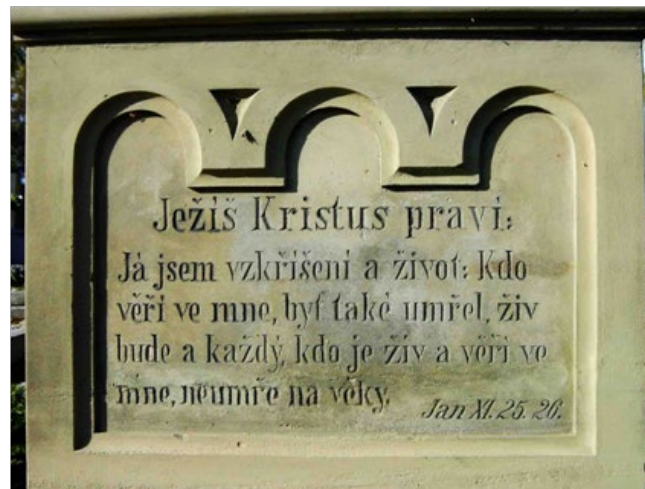 Ježíš Kristus praví:
Já jsem vzkříšení a život: Kdo
věří ve mne, byť také umřel, živ
bude a každý, kdo je živ a věří ve
mne, neumře na věky.
Jan XI. 25. 26.